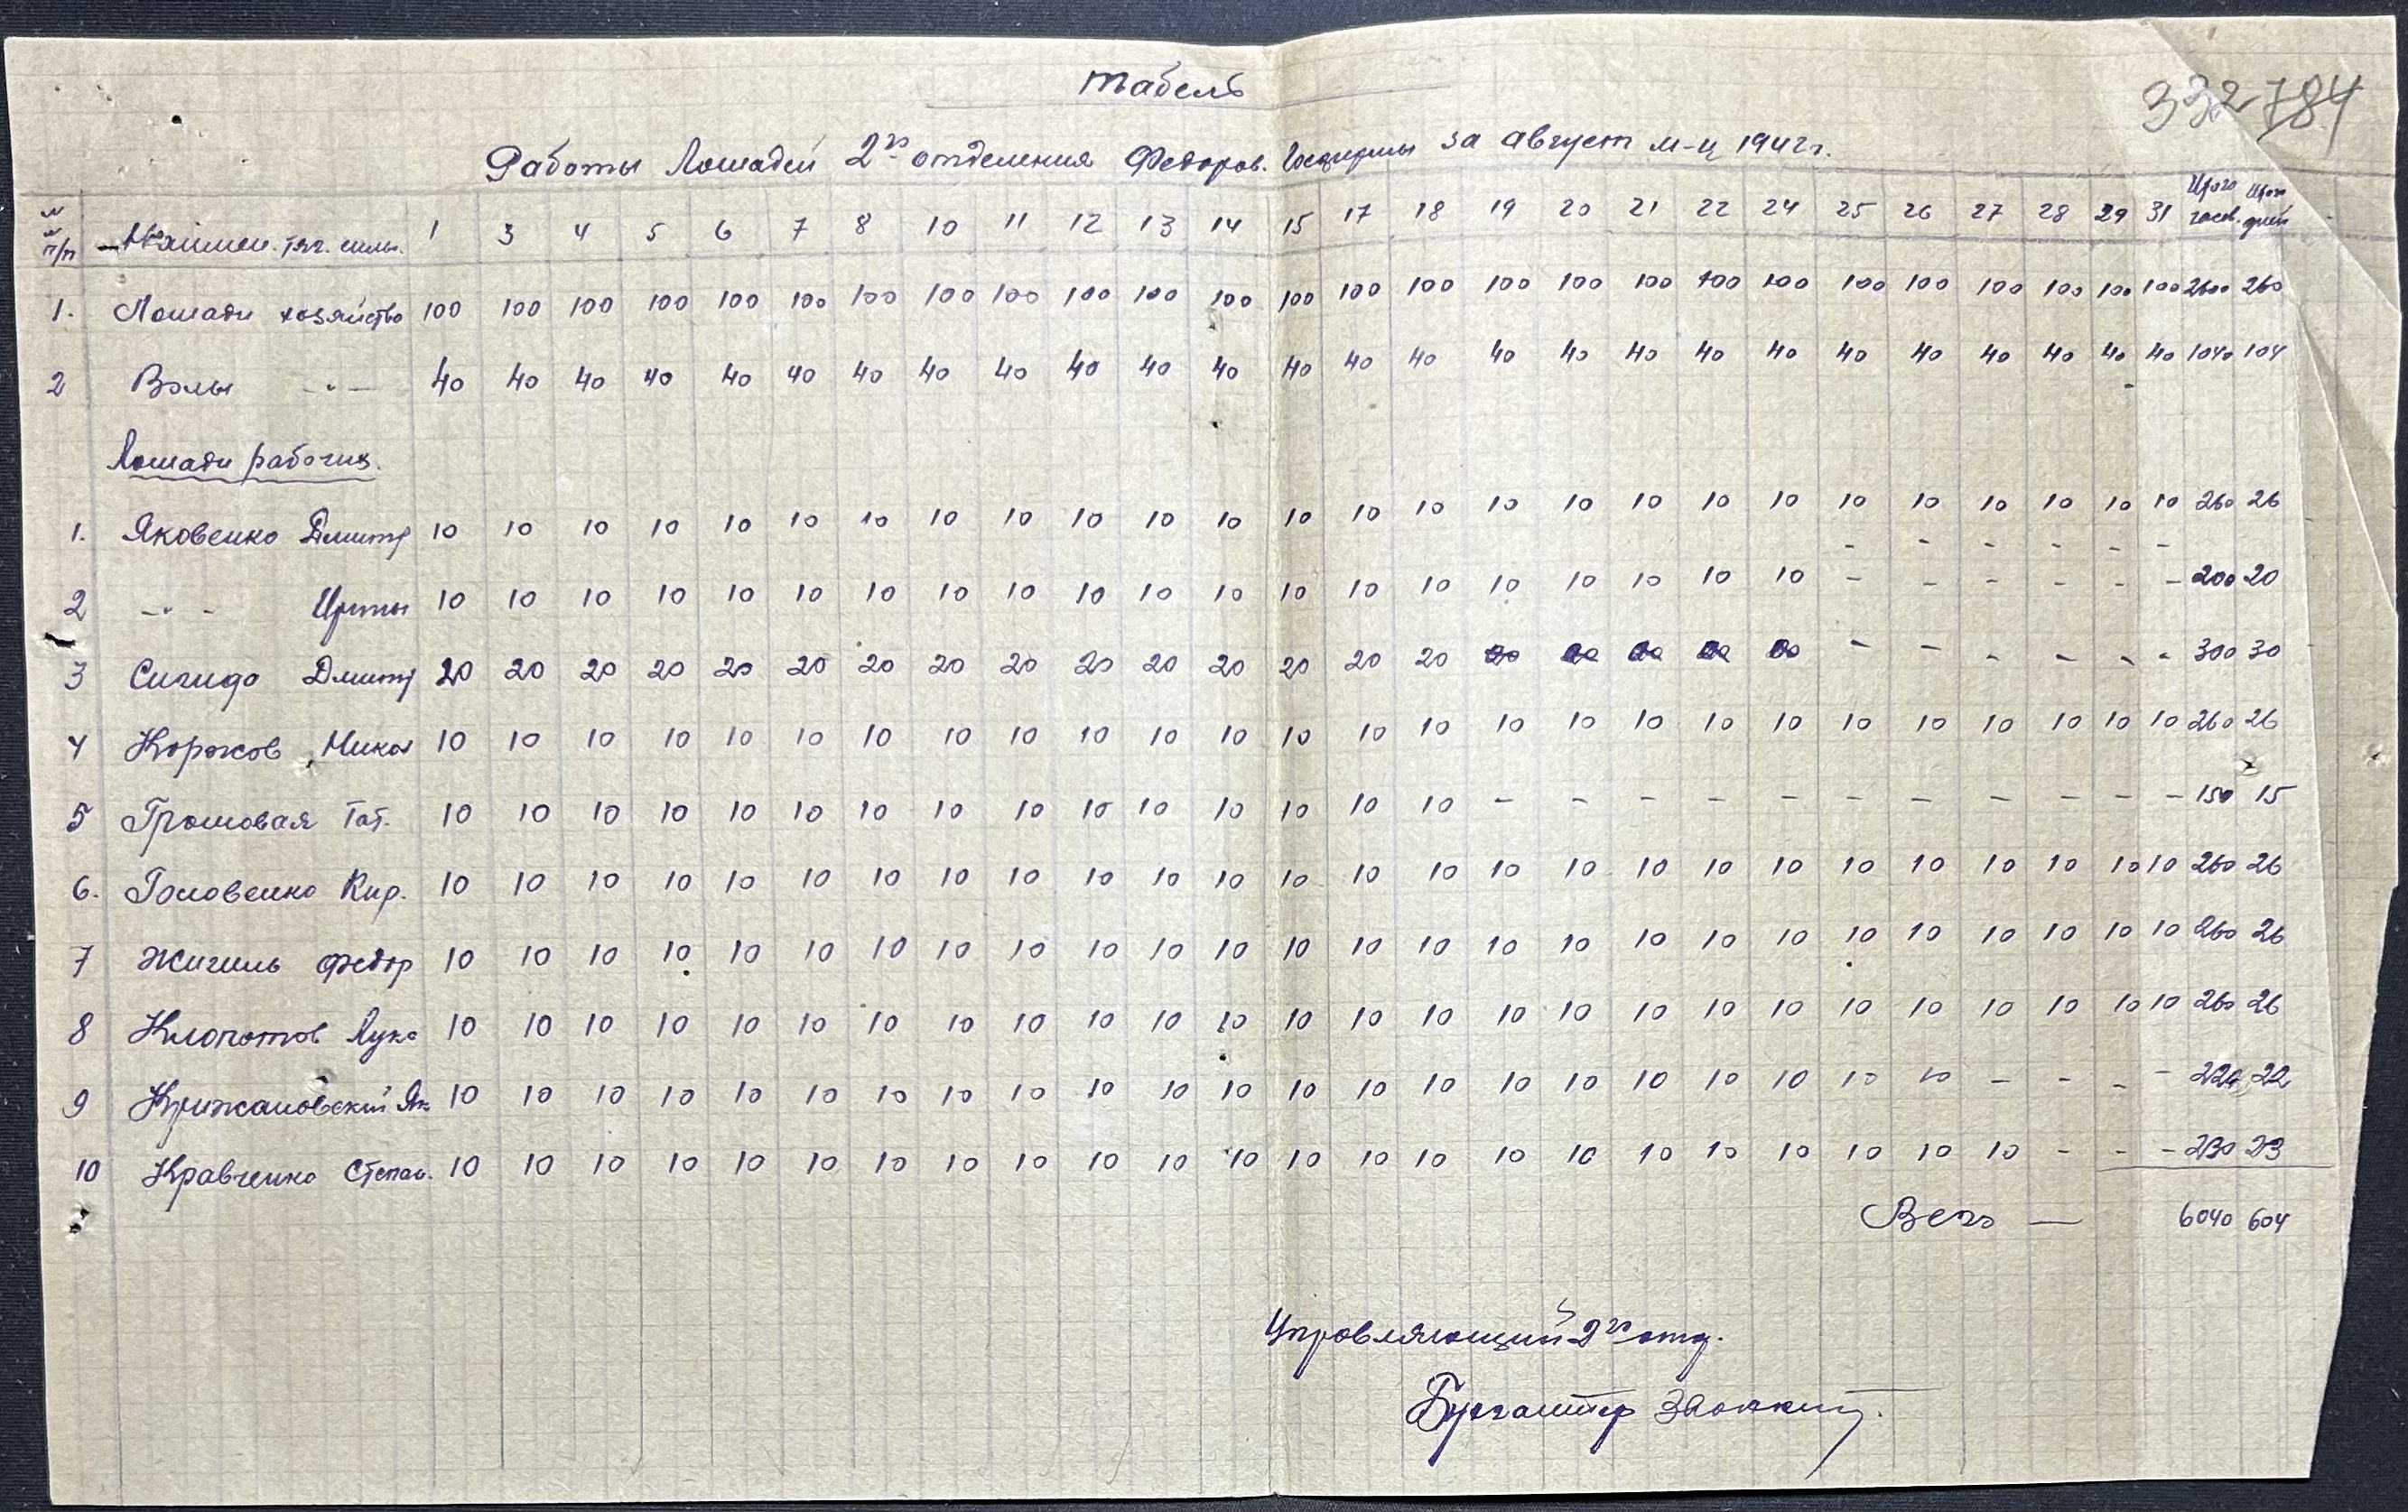 332 784
Табель
Работы Лошадей 2го отделения Федоров. Госфермы за август м-ц 1942 г.
№ п/п Наимен. тяг. силы. 1 3 4 5 6 7 8 10 11 12 13 14 15 17 18 19 20 21 22 24 25 26 27 28 29 31 Итого часов. Итого дней
1. Лошади хозяйство 100 100 100 100 100 100 100 100 100 100 100 100 100 100 100 100 100 100 100 100 100 100 100 100 100 100 2600 260
2 Волы -"- 40 40 40 40 40 40 40 40 40 40 40 40 40 40 40 40 40 40 40 40 40 40 40 40 40 40 1040 104
Лошади рабочих.
1. Яковенко Дмитр 10 10 10 10 10 10 10 10 10 10 10 10 10 10 10 10 10 10 10 10 10 10 10 10 10 10 260 26
2 -"- 10 10 10 10 10 10 10 10 10 10 10 10 10 10 10 10 10 10 10 10 - - - - - - 200 20
3 Сигида Дмитр 20 20 20 20 20 20 20 20 20 20 20 20 20 20 20 - - - - - - 300 30
4 Коржов Никол 10 10 10 10 10 10 10 10 10 10 10 10 10 10 10 10 10 10 10 10 10 10 10 10 10 10 260 26
5 Громовая Тат. 10 10 10 10 10 10 10 10 10 10 10 10 10 10 10 - - - - - - - - - - - 150 15
6. Головенко Кир. 10 10 10 10 10 10 10 10 10 10 10 10 10 10 10 10 10 10 10 10 10 10 10 10 10 10 260 26
7 Жигиль Федор 10 10 10 10 10 10 10 10 10 10 10 10 10 10 10 10 10 10 10 10 10 10 10 10 10 10 260 26
8 Клопотов Лука 10 10 10 10 10 10 10 10 10 10 10 10 10 10 10 10 10 10 10 10 10 10 10 10 10 10 260 26
9 Крижановский Як 10 10 10 10 10 10 10 10 10 10 10 10 10 10 10 10 10 10 10 10 10 10 - - - - 220 22
10 Кравченко Степан. 10 10 10 10 10 10 10 10 10 10 10 10 10 10 10 10 10 10 10 10 10 10 10 - - - 230 23
Всего — 6040 604
Управляющий 2го отд.
Бухгалтер